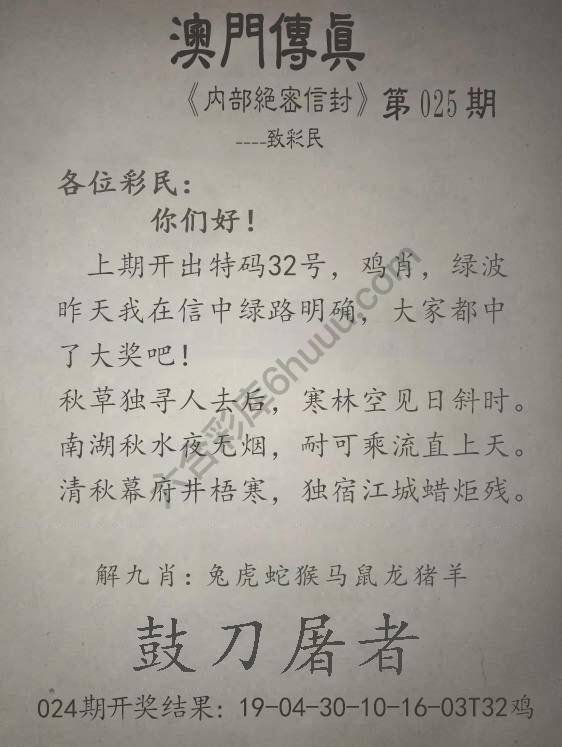 澳門傳眞
《内部絕密信封》第025期
----致彩民
各位彩民：
你们好！
上期开出特码32号，鸡肖，绿波
昨天我在信中绿路明确，大家都中
了大奖吧！
秋草独寻人去后，寒林空见日斜时。
南湖秋水夜无烟，耐可乘流直上天。
清秋幕府井梧寒，独宿江城蜡炬残。
六合彩库6huuu.com
解九肖：兔虎蛇猴马鼠龙猪羊
鼓刀屠者
024期开奖结果：19-04-30-10-16-03T32鸡